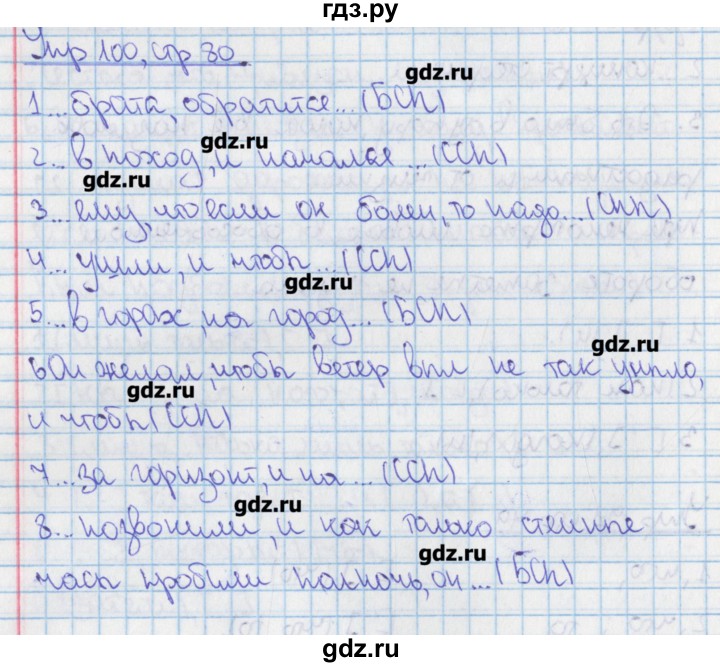 гдз.ру
Упр 100, стр 80.
gdz.ru
1... брата, обратится... (БСП)
gdz.ru
2... в поход, и начались ... (ССП)
gdz.ru
3... ему, что если он болен, то надо... (СПП)
4... ушли, и чтобы... (ССП)
gdz.ru
5... в горах, на город... (БСП)
gdz.ru
6 Он желал, чтобы ветер выл не так уныло,
gdz.ru
и чтобы (ССП)
7... за горизонт, и на... (ССП)
gdz.ru
8... позвонили, и как только
gdz.ru
часы пробили полночь, он... (БСП)
gdz.ru
gdz.ru